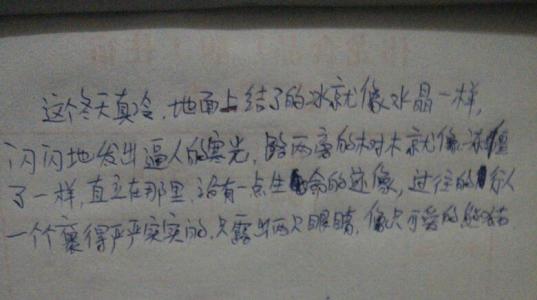 这个冬天真冷,地面上结了的冰就像水晶一样,
闪闪地发出逼人的寒光,路两旁的树木就像冻僵
了一样,直立在那里,没有一点生命的迹像,过往的行人
一个个裹得严严实实的,只露出两只眼睛,像只可爱的熊猫